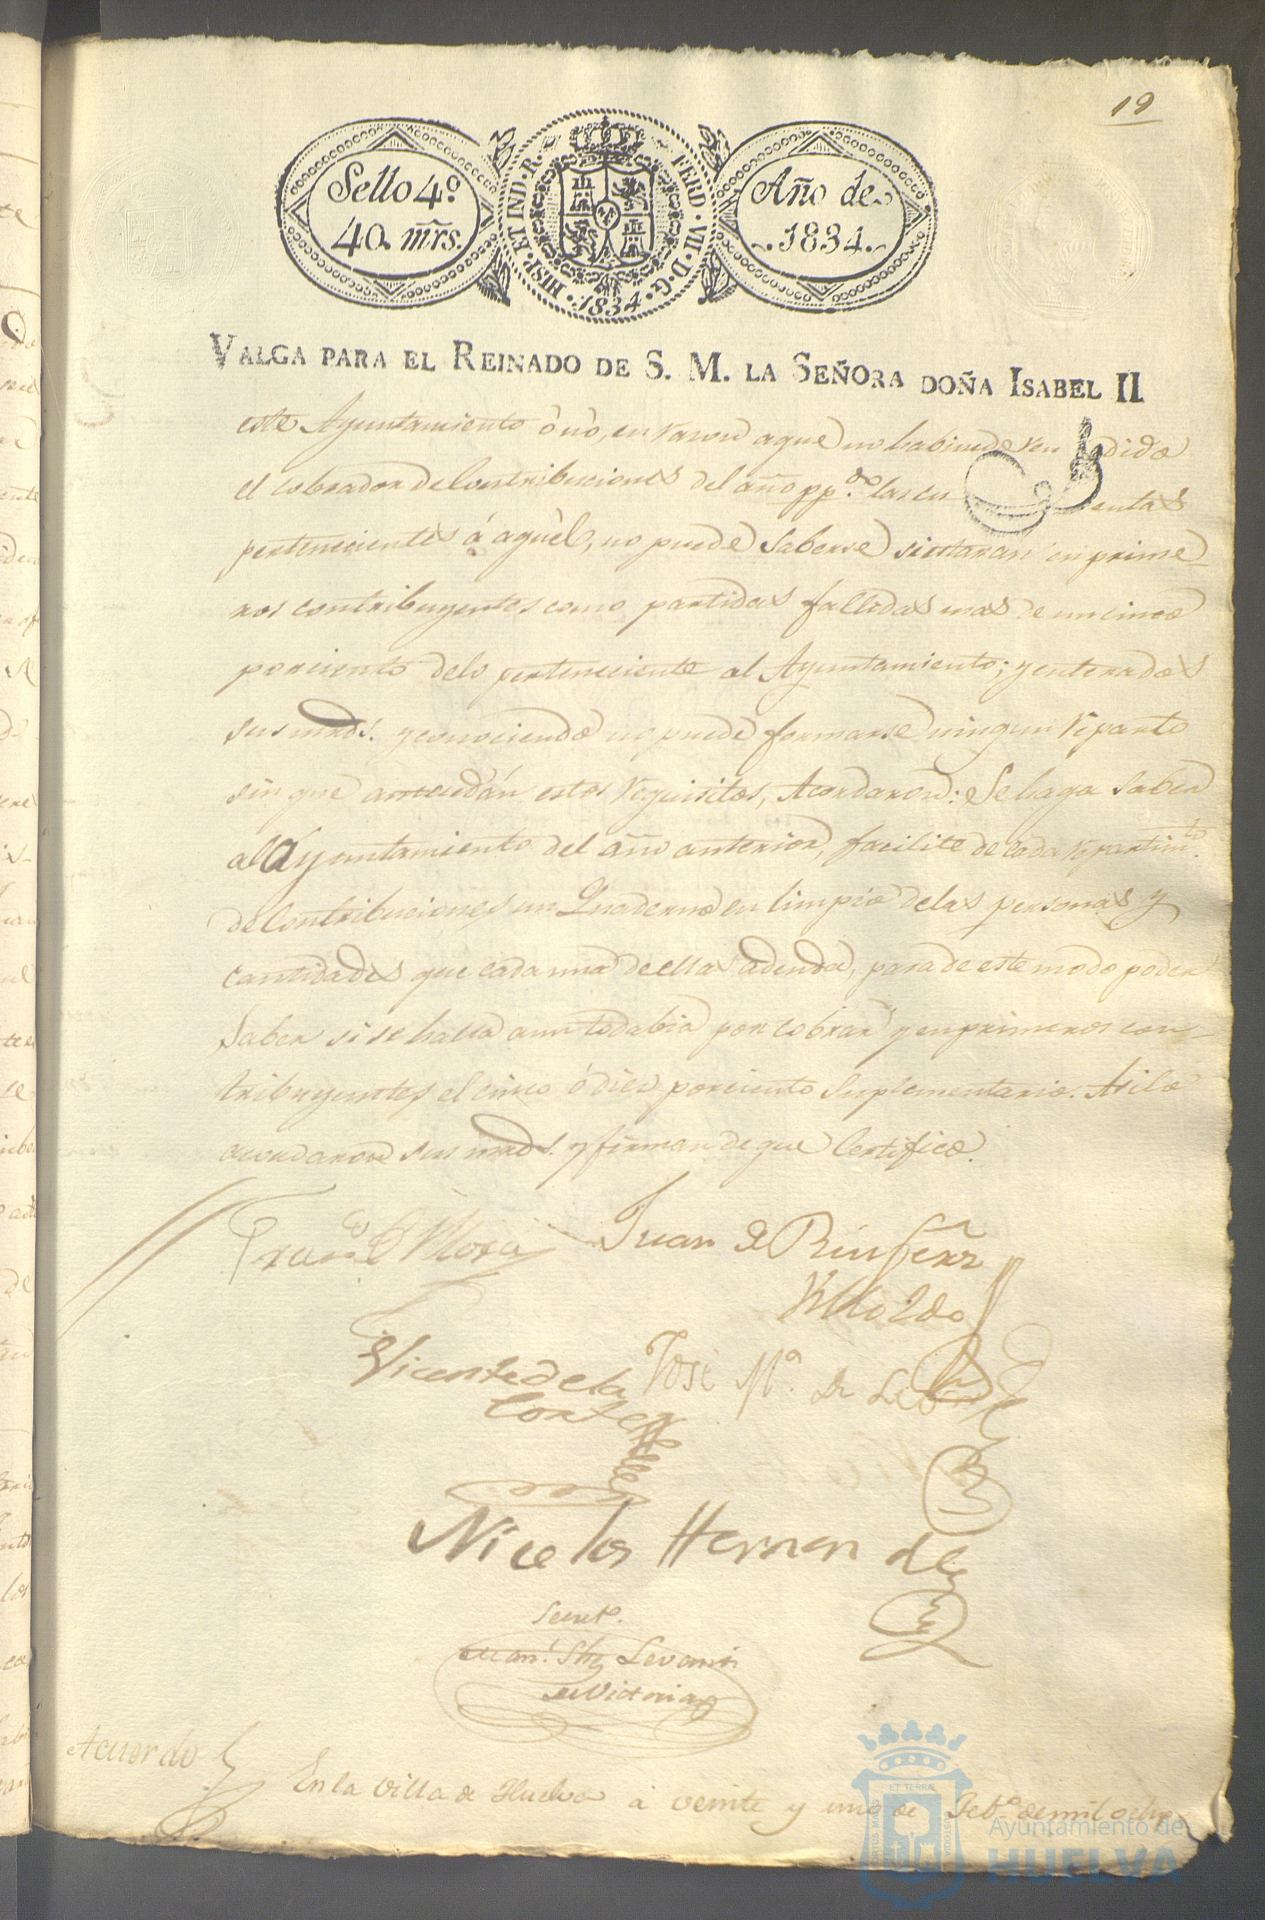 19
Sello 4.º
40 mrs.
HISP. ET IND. R. FERD. VII. D. G. 1834.
Año de
1834.
VALGA PARA EL REINADO DE S. M. LA SEÑORA DOÑA ISABEL II
este Ayuntamiento ò nò, en razon a que no habiendo rendido
el cobrador de Contribuciones del año pp.do las cuentas
pertenecientes á aquel, no puede saberse si estaran en prime-
ros contribuyentes como partidas fallidas mas de un cinco
porciento delo perteneciente al Ayuntamiento; y enterados
sus mrds. y conociendo no puede formarse ningun reparto
sin que antecedán estos requisitos, Acordaron: Se haga saber
al Ayuntamiento del año anterior, facilite de cada repartim.to
de Contribuciones un Quaderno en limpio delas personas y
cantidades que cada una de ellas adeuda, para de este modo poder
saber si se halla aun todabia por cobrar y en primeros con-
tribuyentes el cinco ó diez porciento suplementario. Asi lo
acordaron sus mrds. y firman de que Certifico.
Fran.co de Mora Juan de Rios
Vicente de la José M.ª de Leon
Cortez
Nicolas Hernandez
Secret.º
Man.l Levanti
de Victoria
Acuerdo En la Villa de Huelva a veinte y uno de Feb.º de mil ocho
ET TERRA
Ayuntamiento de
HUELVA